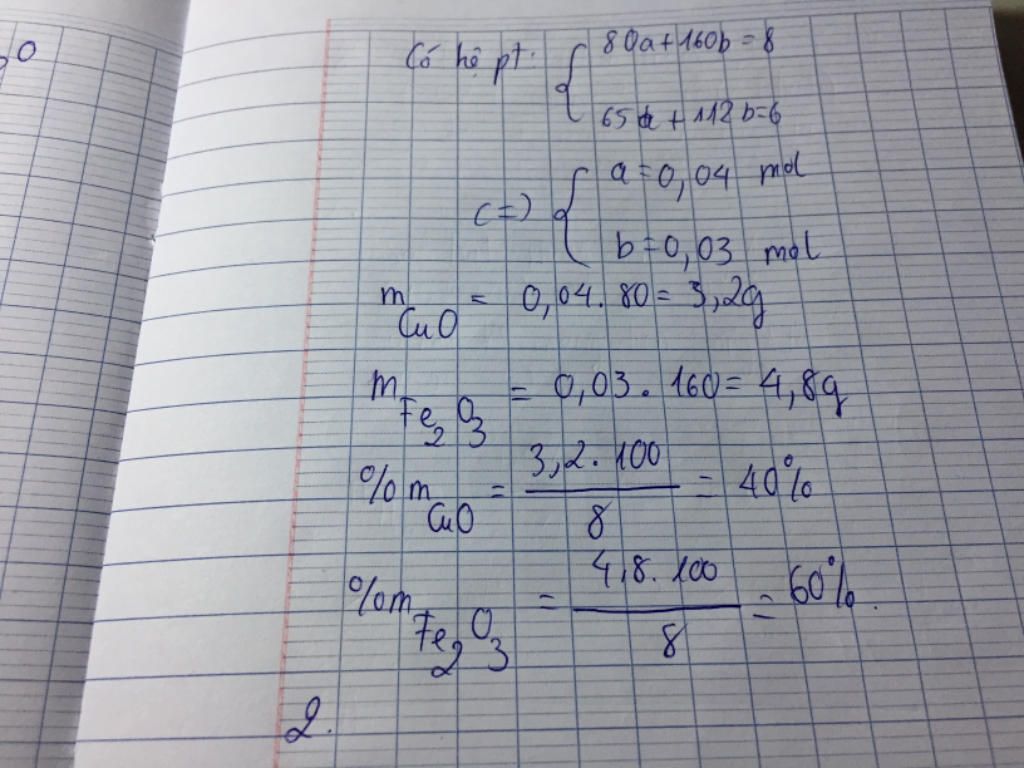 20
Có hệ pt: { 80a + 160b = 8
65a + 112b = 6
<=> { a = 0,04 mol
b = 0,03 mol
m CuO = 0,04. 80 = 3,2g
m Fe2O3 = 0,03. 160 = 4,8g
%m CuO = 3,2. 100 / 8 = 40%
%m Fe2O3 = 4,8. 100 / 8 = 60%.
2.